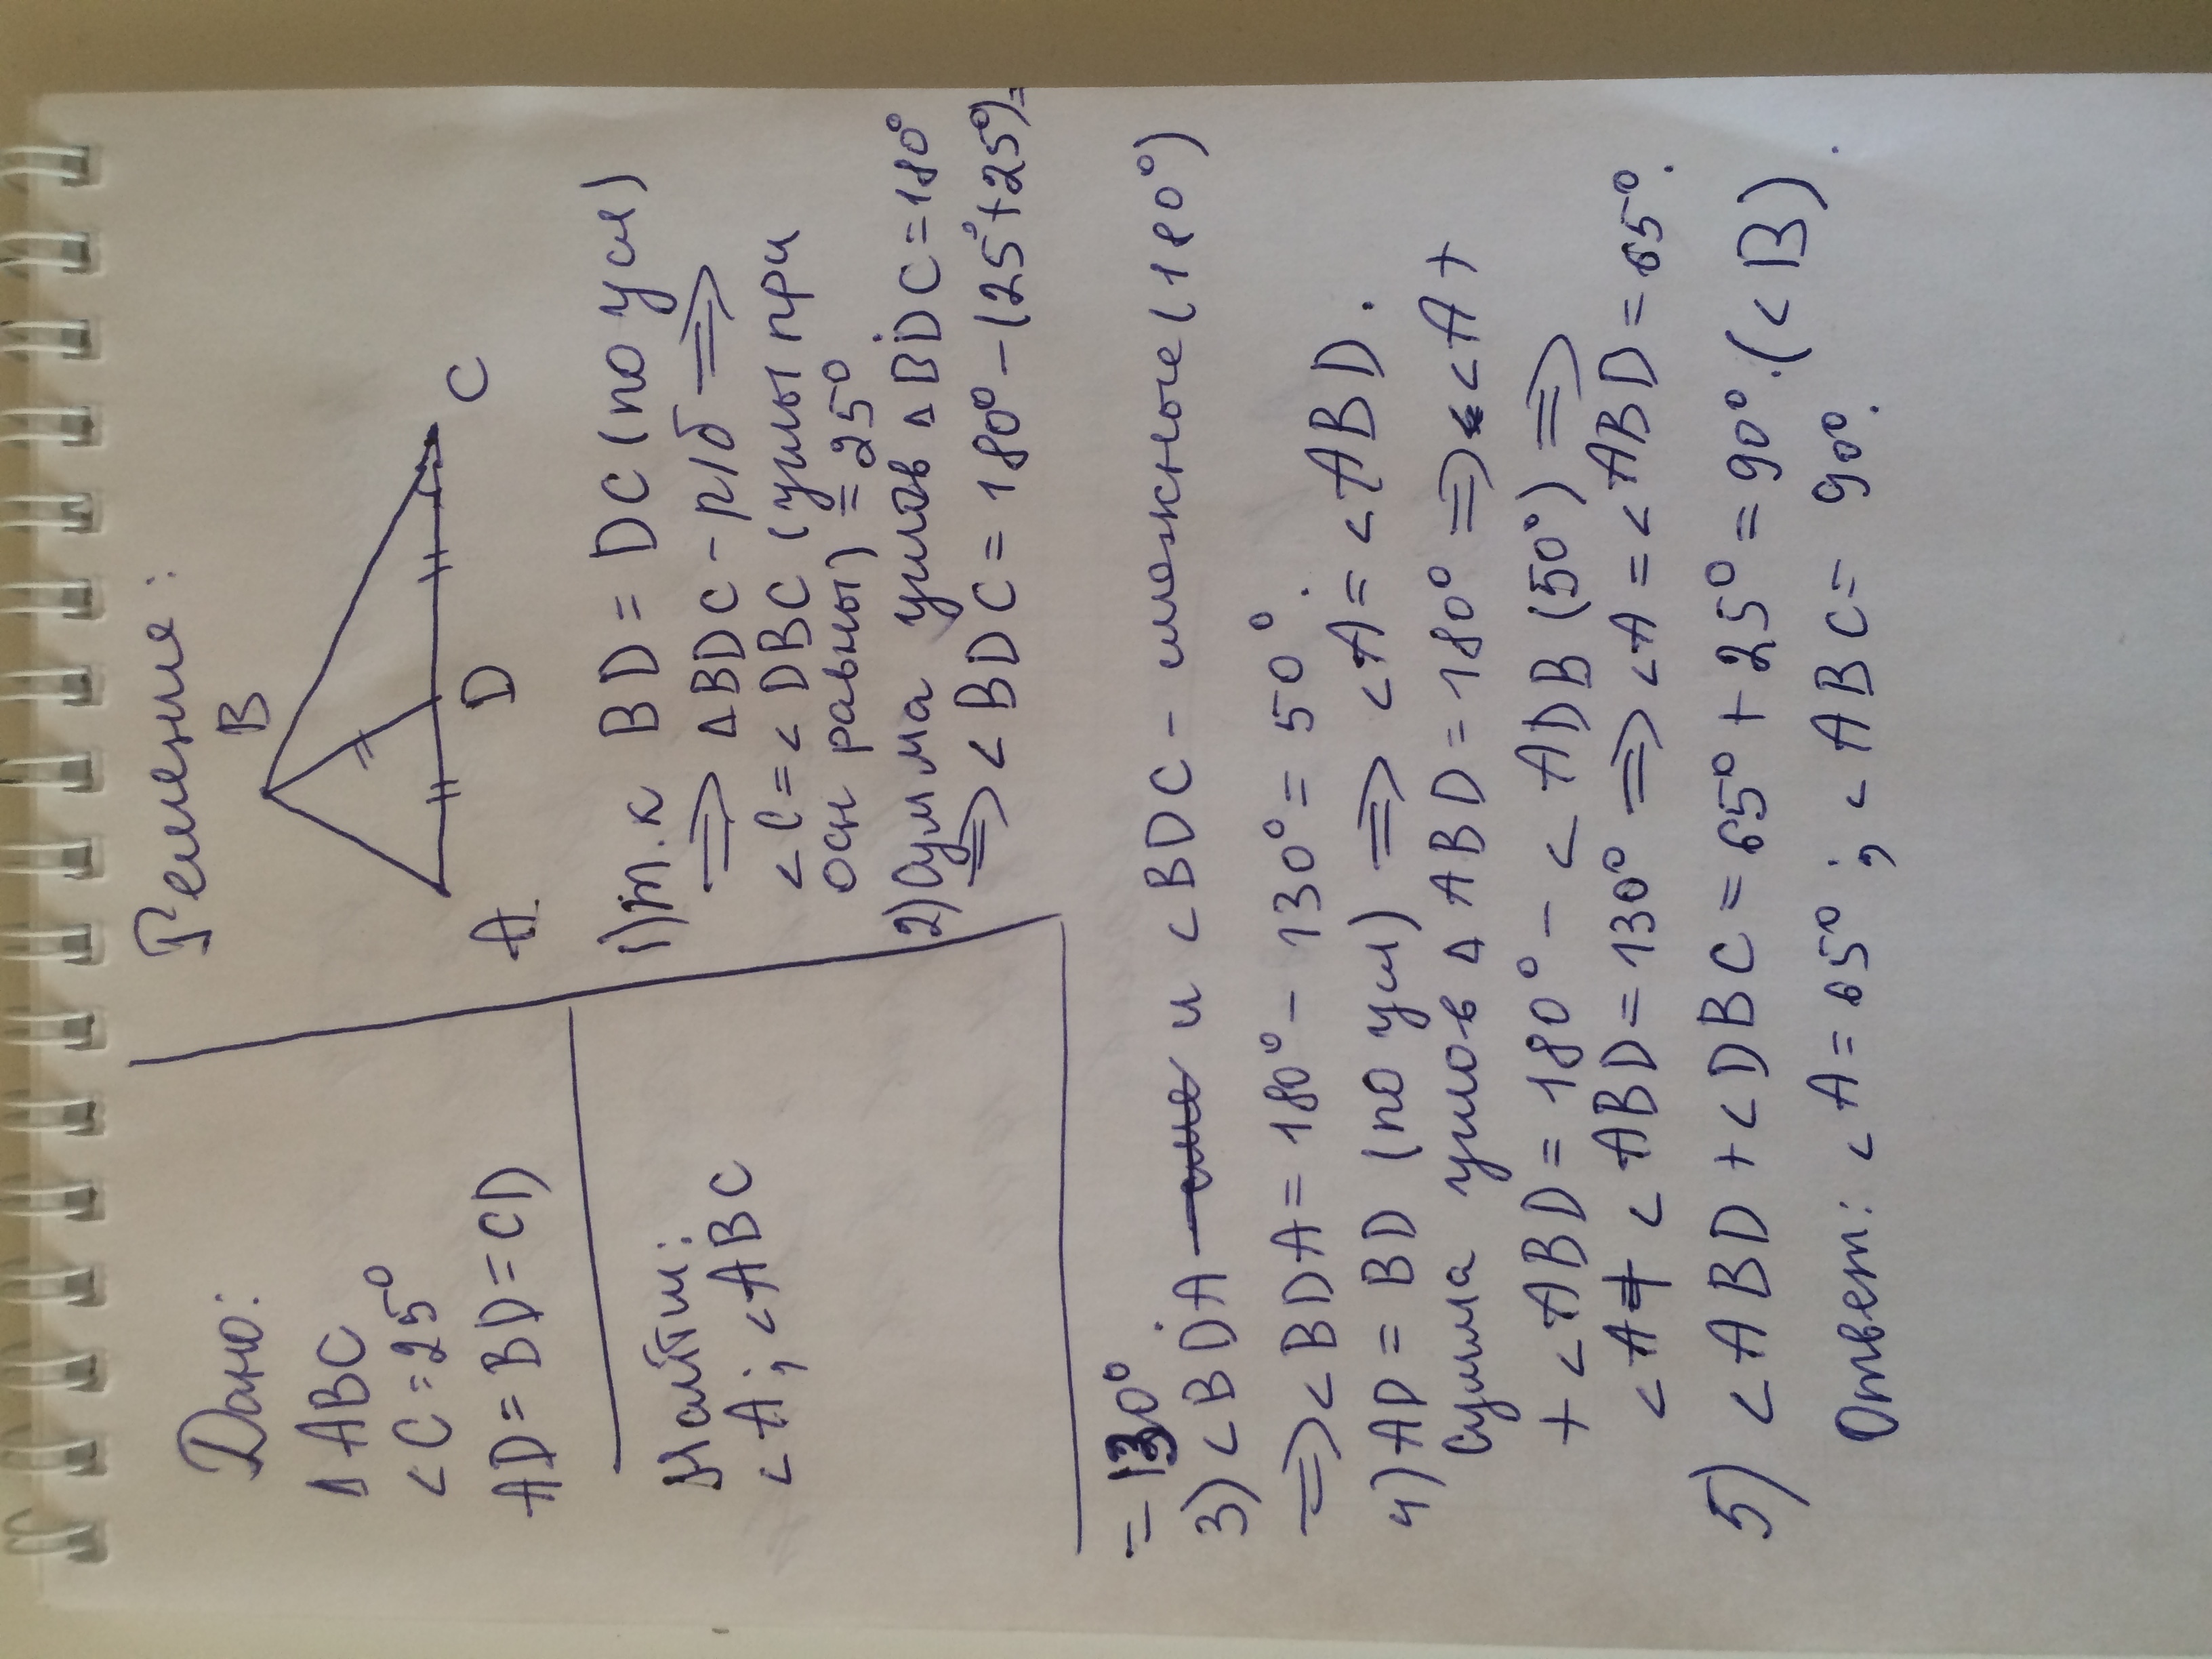 Дано:
Δ ABC
∠C=25°
AD=BD=CD
Найти:
∠A; ∠ABC
Решение:
B
A.
D
C
1) т.к BD=DC (по усл)
⇒ ΔBDC - р/б ⇒
∠C=∠DBC (углы при
осн равны) = 25°
2) Сумма углов Δ BDC=180°
⇒ ∠BDC=180°-(25°+25°)=
=130°
3) ∠BDA и ∠BDC - смежные (180°)
⇒ ∠BDA=180°-130°=50°.
4) AD=BD (по усл) ⇒ ∠A=∠ABD.
Сумма углов Δ ABD=180° ⇒ ∠A+
+∠ABD=180°-∠ADB (50°) ⇒
∠A+∠ABD=130° ⇒ ∠A=∠ABD=65°.
5) ∠ABD+∠DBC=65°+25°=90°.(∠B).
Ответ: ∠A=65°; ∠ABC=90°.